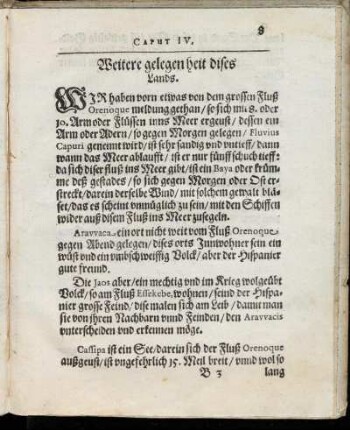 8
CAPUT IV.
Weitere gelegenheit dises
Lands.
WIR haben vorn etwas von dem grossen Fluß
Orenoque meldung gethan / so sich mit 8. oder
10. Arm oder Flüssen inns Meer ergeust / dessen ein
Arm oder Adern / so gegen Morgen gelegen / Fluvius
Capuri genennt wird / ist sehr sandig vnd vntieff / dann
wann das Meer ablaufft / ist er nur fünff schuch tieff:
da sich diser fluß ins Meer gibt / ist ein Baya oder krüm-
me deß gestades / so sich gegen Morgen oder Ost er-
streckt / darein derselbe Wind / mit solchem gewalt blä-
set / das es scheint vnmüglich zu sein / mit den Schiffen
wider auß disem Fluß ins Meer zusegeln.
Aravvaca ein ort nicht weit vom Fluß Orenoque
gegen Abend gelegen / dises orts Innwohner sein ein
wüst vnd ein vmbschweiffig Volck / aber der Hispanier
gute freund.
Die Jaos aber / ein mechtig vnd im Krieg wolgeübt
Volck / so am Fluß Essekebe, wohnen / seind der Hispa-
nier grosse Feind / dise malen sich am Leib / damit man
sie von ihren Nachbarn vnnd Feinden / den Aravvacis
vnterscheiden vnd erkennen möge.
Cassipa ist ein See / darein sich der Fluß Orenoque
außgeust / ist vngefehrlich 15. Meil breit / vnnd wol so
B 3 lang